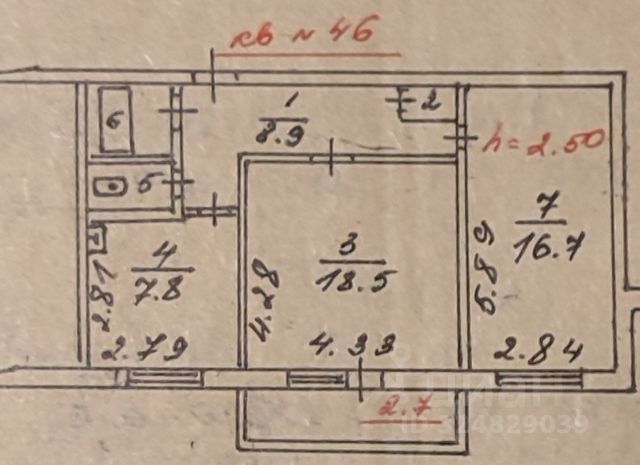 кв № 46
1
8.9
2
6
h=2.50
5
7
16.7
5.89
4
7.8
2.81
3
18.5
4.28
2.79
4.33
2.84
2.7
циан
ID 324829039